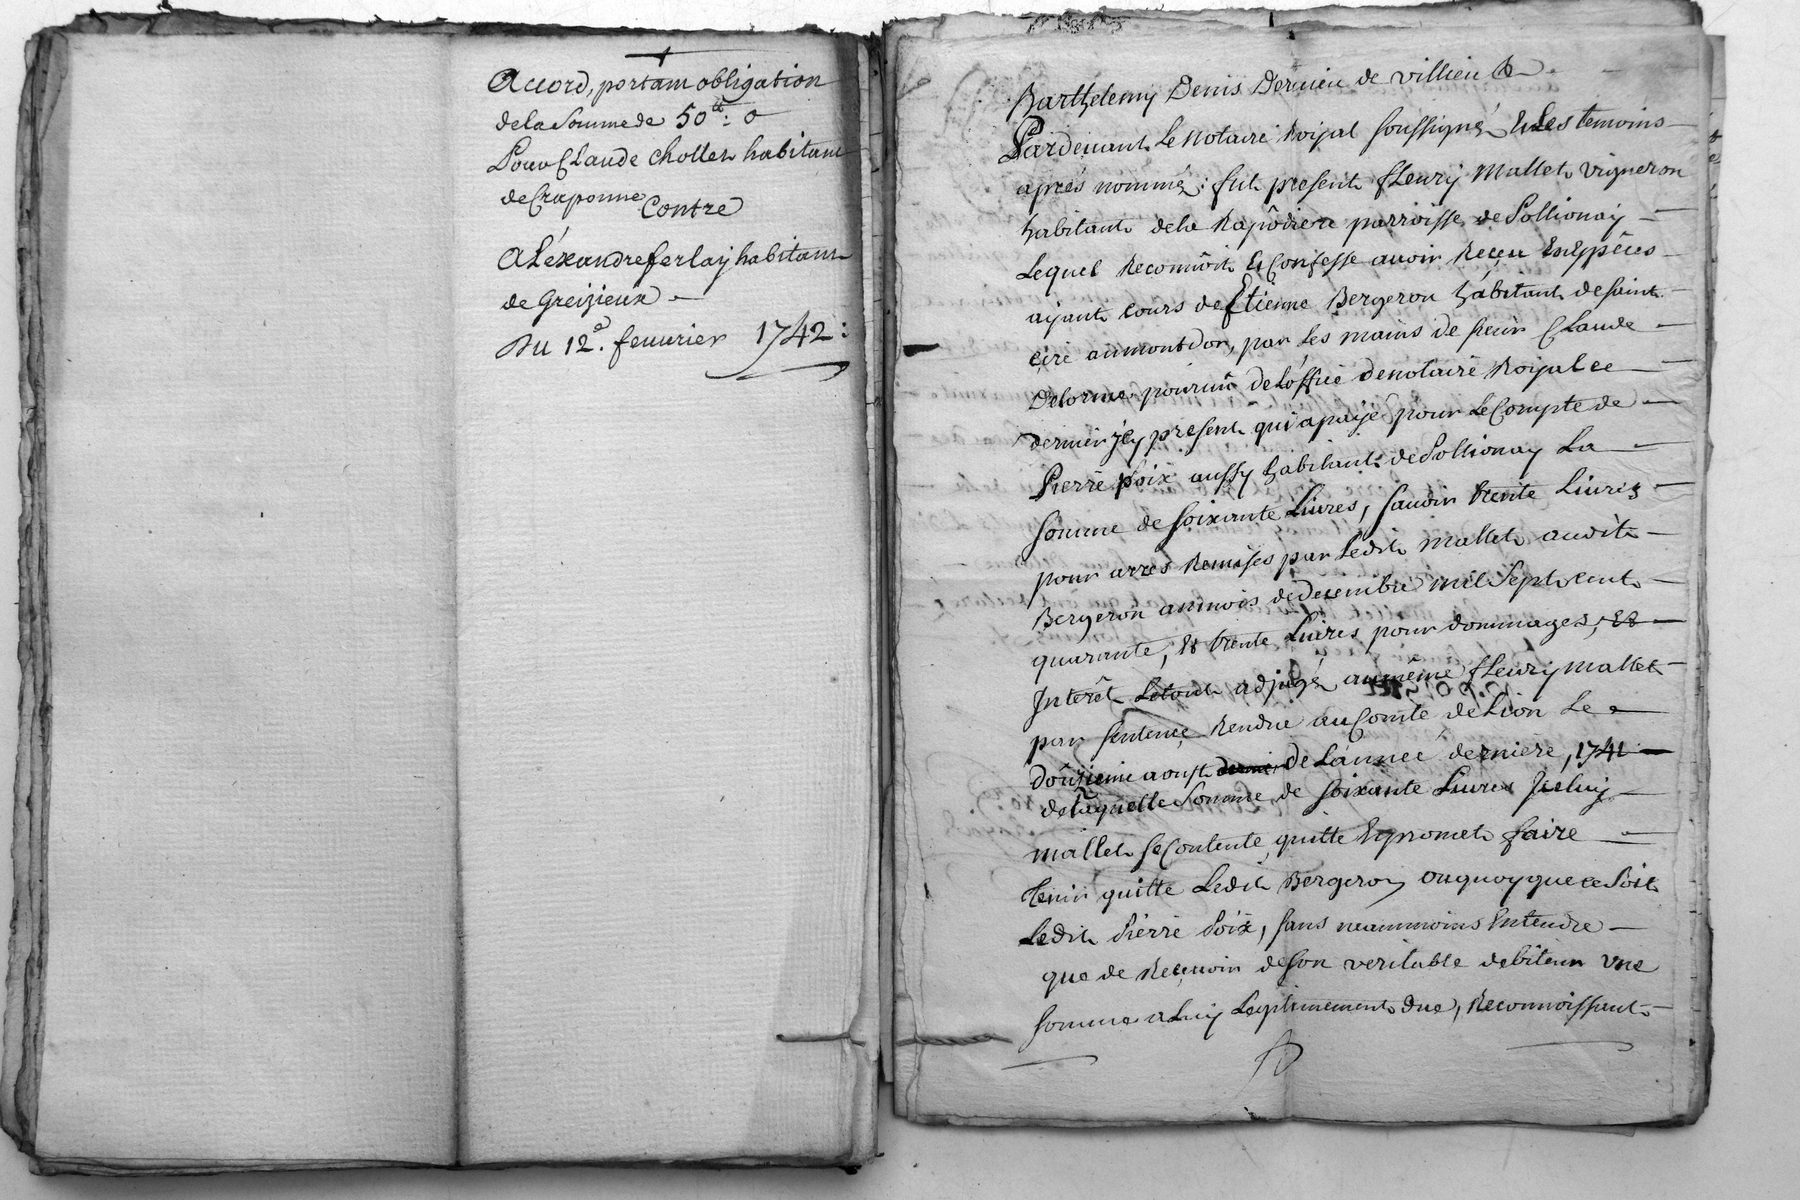 Accord, portam obligation
de la Somme de 50 tt: o
Pour Claude chollet habitant
de Craponne
Contre
Aléxandre ferlay habitant
de Greizieux
Du 12e. feuurier 1742:
Barthelemy Denis Dernieu de villieu
Pardeuant Le Notaire Roijal soussigné & Les temoins
aprés nommés; fut present fleury Mallet vigneron
habitant de la Rapôdiere parroisse de Pollionaij
Lequel Reconnôit & Confesse auoir Reçeu En Espêces
aijant cours de Etienne Bergeron habitant de saint
çire au mont dor, par Les mains de sieur Claude
Delorme pouruû de L'office de notaire Roijal ce
dernier jcy present qui a paijé pour Le Compte de
Pierre Poix aussy habitant de Pollionay La
somme de soixante Liures, sauoir trente Liures
pour arres Remises par Ledit Mallet audit
Bergeron au mois de decembre mil Sept cent
quarante, & trente Liures pour dommages, Et
Interêt Le tout adjugé au même fleury Mallet
par sentence Rendue au Comté de Lion Le
douzieme aoust de L'année derniere, 1741
de Laquelle Somme de soixante Liures Jceluy
Mallet se Contente, quitte & promet faire
tenir quitte Ledit Bergeron ou quoy que ce soit
Ledit Pierre Poix, sans neammoins Entendre
que de Reçeuoir de son veritable debiteur une
somme a Luy Legitimement due, Reconnoissant